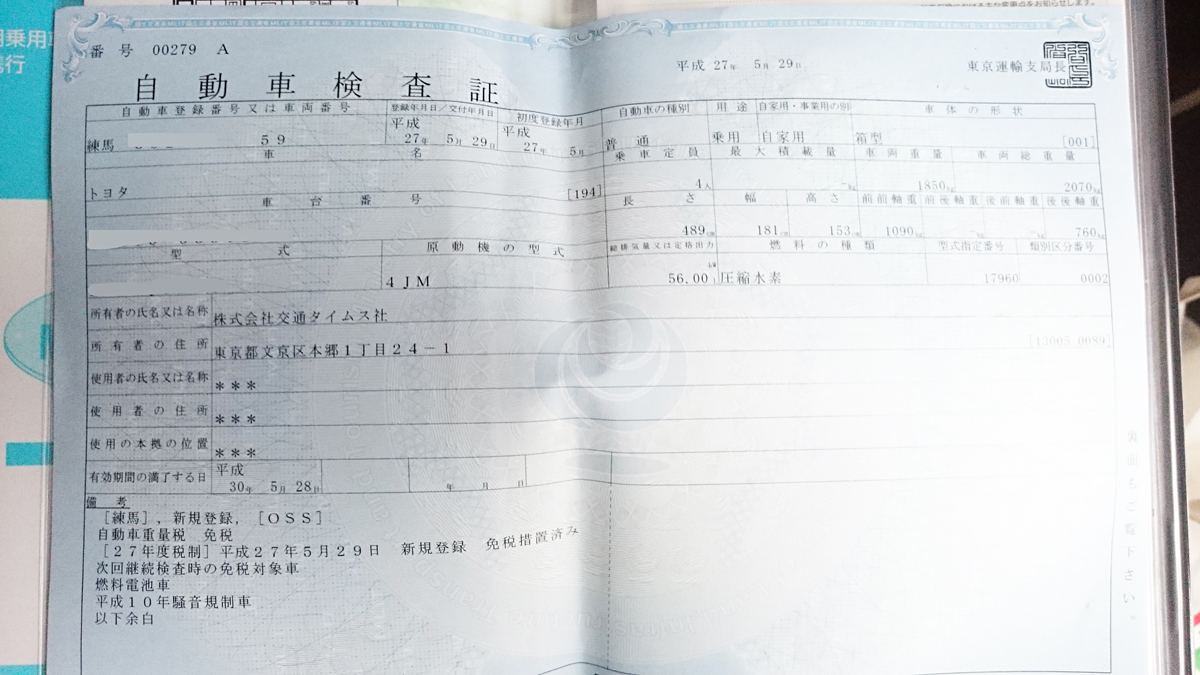 用乗用車
携行
番号 00279 A
平成 27年 5月 29日
東京運輸支局長
自動車検査証
自動車登録番号又は車両番号
登録年月日/交付年月日
初度登録年月
自動車の種別
用途
自家用・事業用の別
車体の形状
練馬 59
平成 27年 5月 29日
平成 27年 5月
普通
乗用
自家用
箱型 [001]
車名
乗車定員
最大積載量
車両重量
車両総重量
トヨタ [194]
4人
-kg
1850kg
2070kg
車台番号
長さ
幅
高さ
前前軸重
前後軸重
後前軸重
後後軸重
489cm
181cm
153cm
1090kg
-kg
-kg
760kg
型式
原動機の型式
総排気量又は定格出力
燃料の種類
型式指定番号
類別区分番号
4JM
kW
56.00 l
圧縮水素
17960
0002
所有者の氏名又は名称 株式会社交通タイムス社
所有者の住所 東京都文京区本郷1丁目24-1 [13005 0089]
使用者の氏名又は名称 ***
使用者の住所 ***
使用の本拠の位置 ***
有効期間の満了する日 平成 30年 5月 28日 年 月 日
備考
[練馬],新規登録,[OSS]
自動車重量税 免税
[27年度税制]平成27年5月29日 新規登録 免税措置済み
次回継続検査時の免税対象車
燃料電池車
平成10年騒音規制車
以下余白
裏面もご覧下さい。